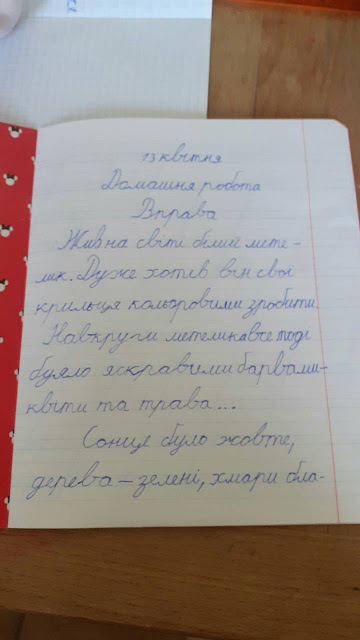 13 квітня
Домашня робота
Вправа
Жив на світі білий мете-
лик. Дуже хотів він свої
крильця кольоровими зробити.
Навкруги метелика все тоді
буяло яскравими барвами-
квіти та трава...
Сонце було жовте,
дерева - зелені, хмари бла-